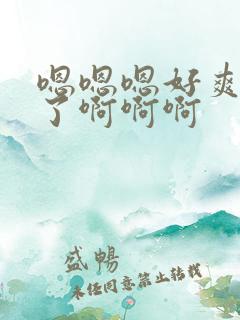 嗯嗯嗯好爽
了啊啊啊
盛畅
未经同意禁止转载